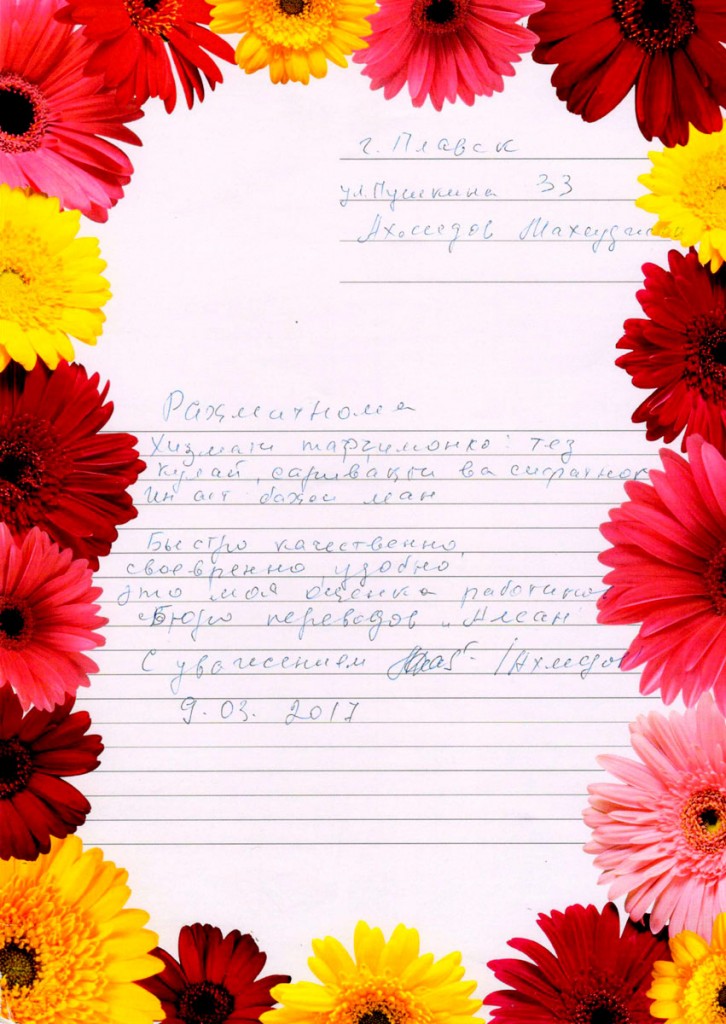 г. Плавск
ул. Пушкина 33
Ахмедов
Рахматнома
Хизмати тарчимонхо: тез
кулай, саривакти ва сифатнок
ин аст бахои ман
Быстро качественно,
своевренно, удобно
это моя оценка работников
"Бюро переводов "Алсан"
С уважением /Ахмедов
9.03.2017